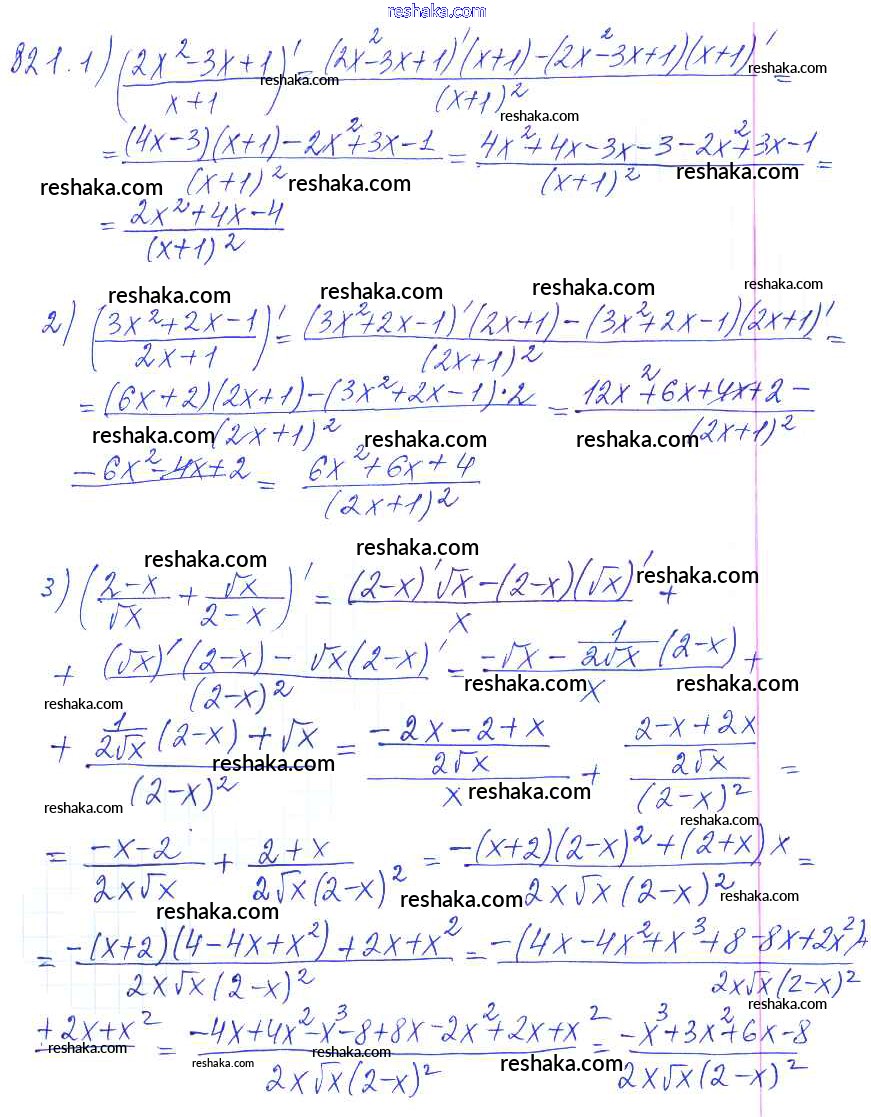 reshaka.com
821. 1) ((2x²-3x+1)/(x+1))' = ((2x²-3x+1)'(x+1)-(2x²-3x+1)(x+1)')/(x+1)² =
reshaka.com reshaka.com reshaka.com
= ((4x-3)(x+1)-2x²+3x-1)/(x+1)² = (4x²+4x-3x-3-2x²+3x-1)/(x+1)² =
reshaka.com reshaka.com reshaka.com
= (2x²+4x-4)/(x+1)²
reshaka.com reshaka.com reshaka.com reshaka.com
2) ((3x²+2x-1)/(2x+1))' = ((3x²+2x-1)'(2x+1)-(3x²+2x-1)(2x+1)')/(2x+1)² =
= ((6x+2)(2x+1)-(3x²+2x-1)·2)/(2x+1)² = (12x²+6x+4x+2-)/(2x+1)²
reshaka.com reshaka.com reshaka.com
(-6x²-4x+2) = (6x²+6x+4)/(2x+1)²
reshaka.com reshaka.com reshaka.com
3) ((2-x)/√x + √x/(2-x))' = ((2-x)'√x-(2-x)(√x)')/x +
+ ((√x)'(2-x)-√x(2-x)')/(2-x)² = (-√x-1/(2√x)(2-x))/x +
reshaka.com reshaka.com reshaka.com
+ (1/(2√x)(2-x)+√x)/(2-x)² = ((-2x-2+x)/(2√x))/x + ((2-x+2x)/(2√x))/(2-x)² =
reshaka.com reshaka.com reshaka.com reshaka.com
= (-x-2)/(2x√x) + (2+x)/(2√x(2-x)²) = (-(x+2)(2-x)²+(2+x)x)/(2x√x(2-x)²) =
reshaka.com reshaka.com reshaka.com
= (-(x+2)(4-4x+x²)+2x+x²)/(2x√x(2-x)²) = (-(4x-4x²+x³+8-8x+2x²)+)/(2x√x(2-x)²)
reshaka.com
(+2x+x²) = (-4x+4x²-x³-8+8x-2x²+2x+x²)/(2x√x(2-x)²) = (-x³+3x²+6x-8)/(2x√x(2-x)²)
reshaka.com reshaka.com reshaka.com reshaka.com